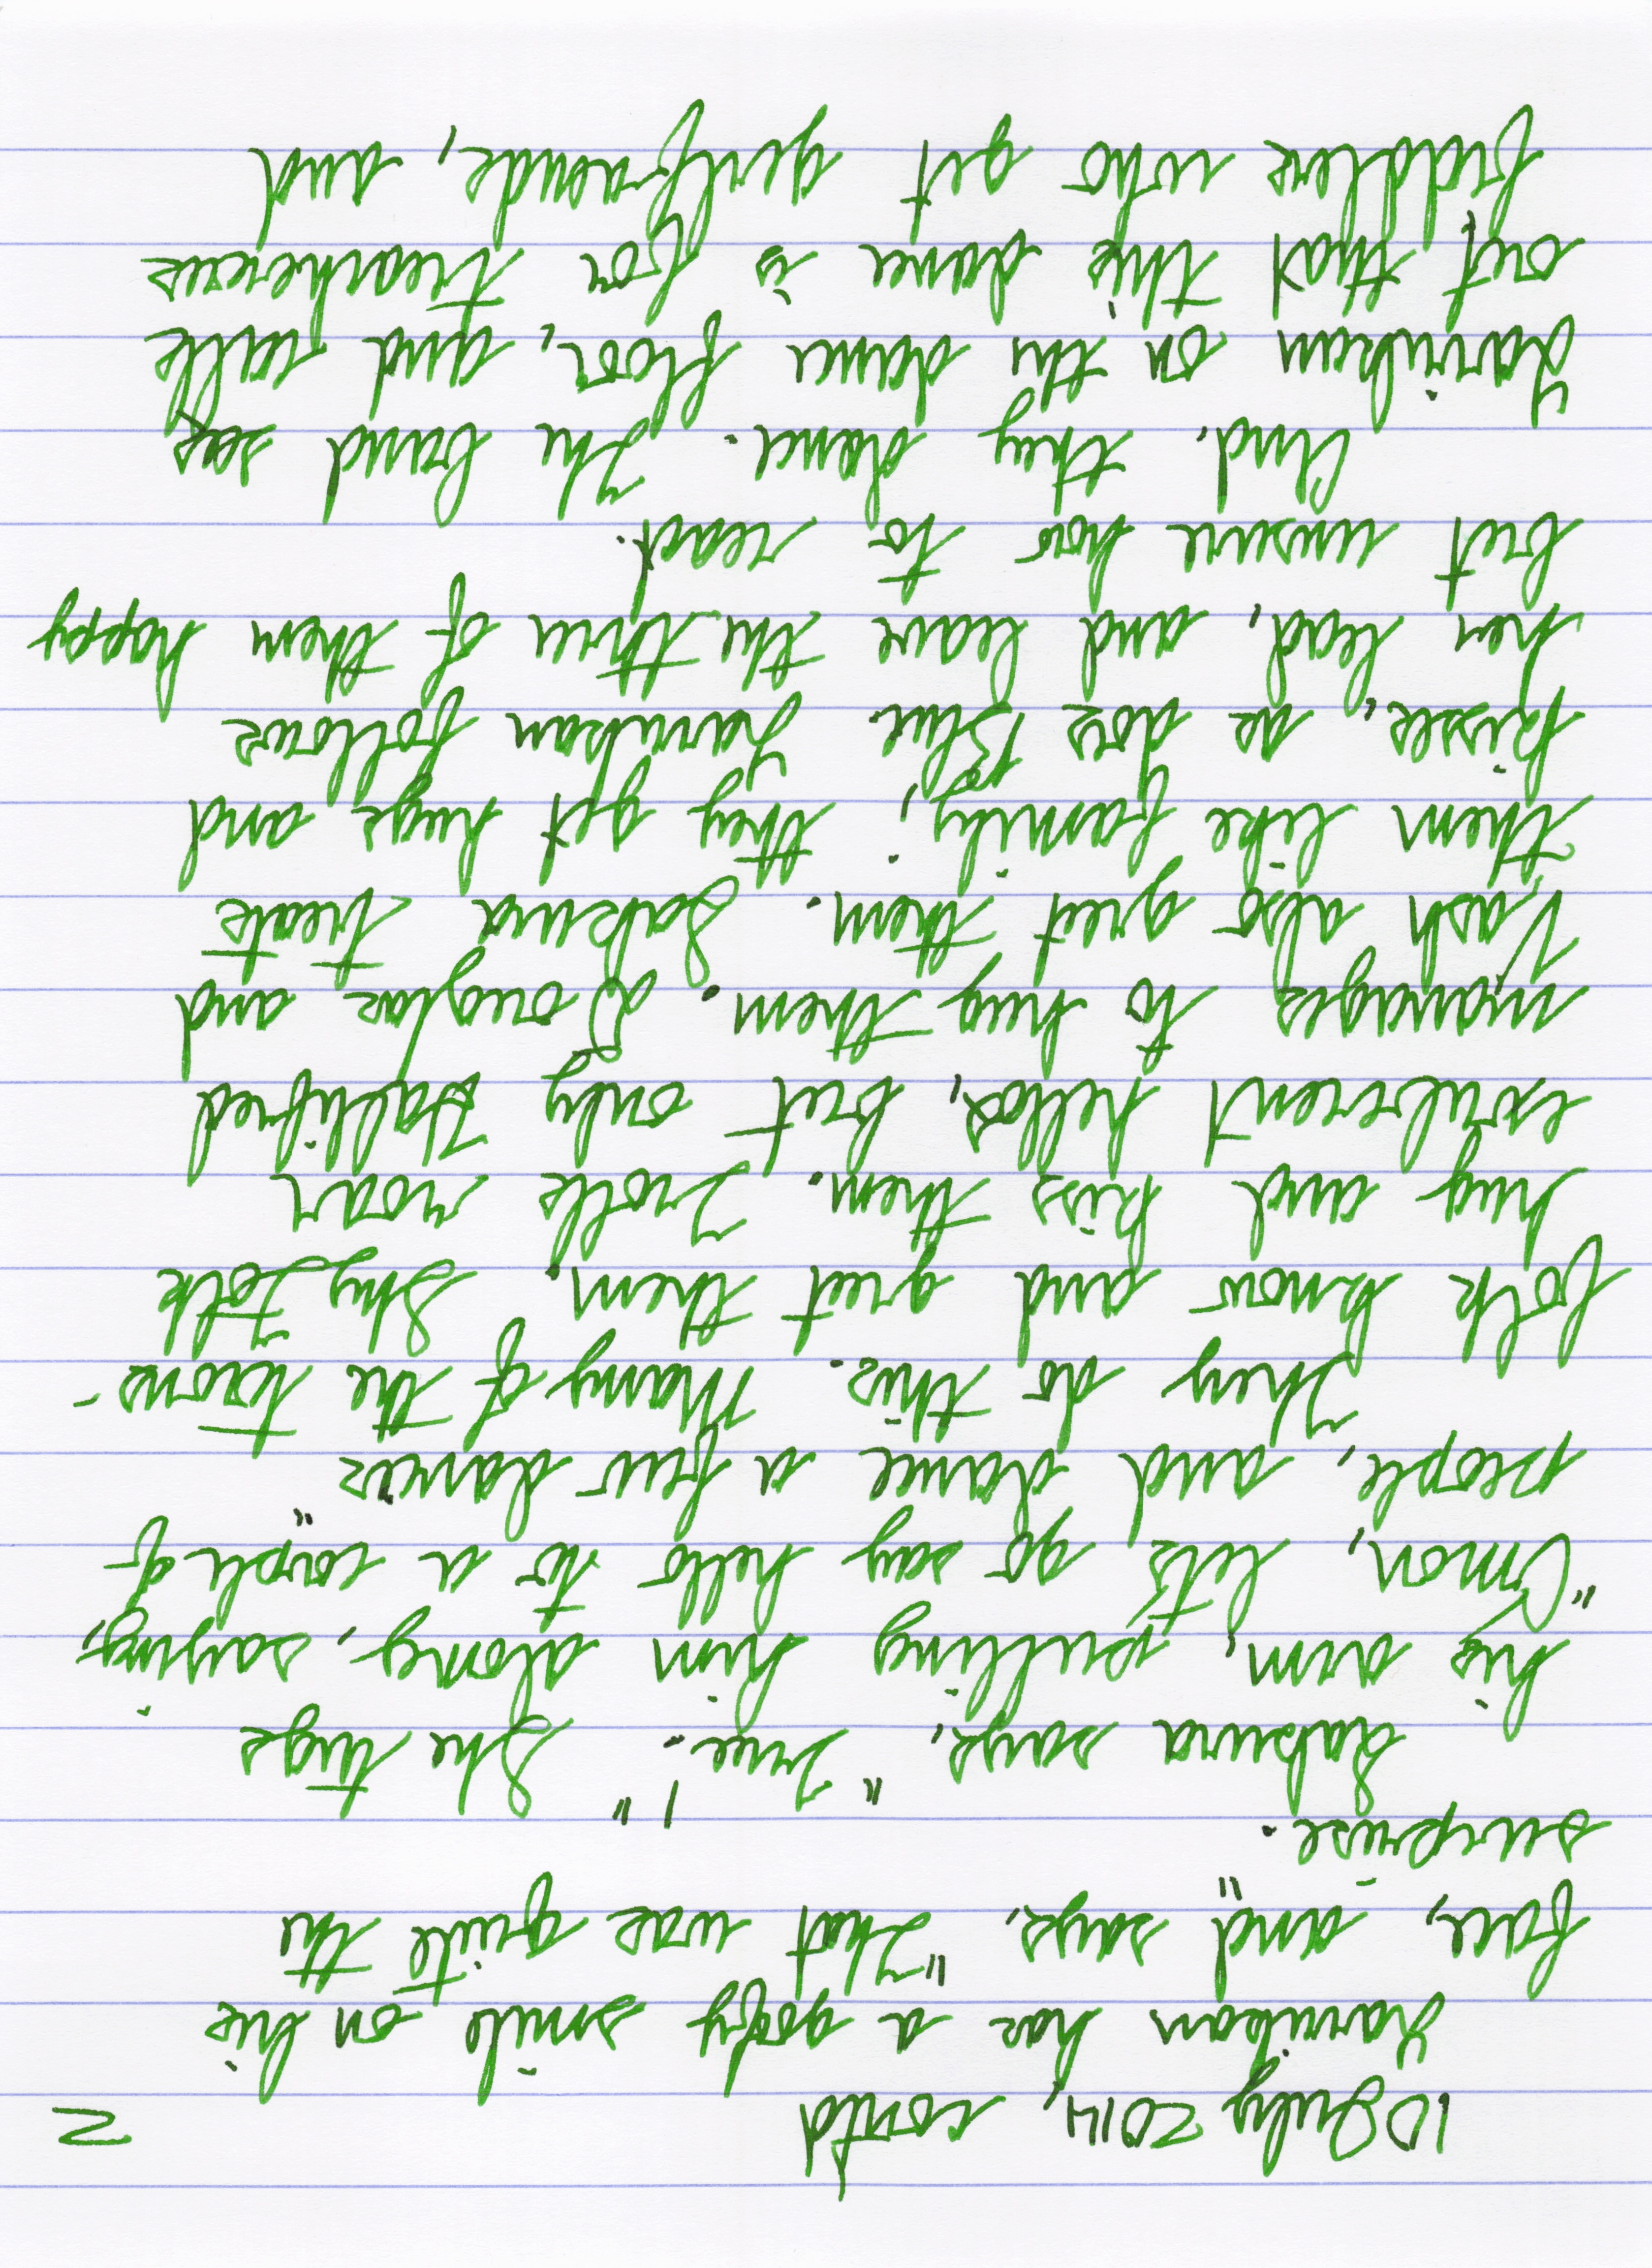 10 July 2014, contd 2
Yarrikan has a goofy smile on his
face, and says, "That was quite the
surprise."
Sakura says, "True!" She tugs
his arm, pulling him along, saying,
"C'mon, let's go say hello to a couple of
people, and dance a few dances."
They do this. Many of the towns-
folk know and greet them. Shy Folk
hug and kiss them. Trolls roar
exuberant hellos, but only Hallifred
manages to hug them. Douglas and
Vash also greet them. Sakura treats
them like family; they get hugs and
kisses, so does Blue. Yarrikan follows
her lead, and leave the three of them happy
but unsure how to react.
And, they dance. The band sees
Yarrikan on the dance floor, and calls
out that this dance is for treacherous
fiddlers who get girlfriends, and